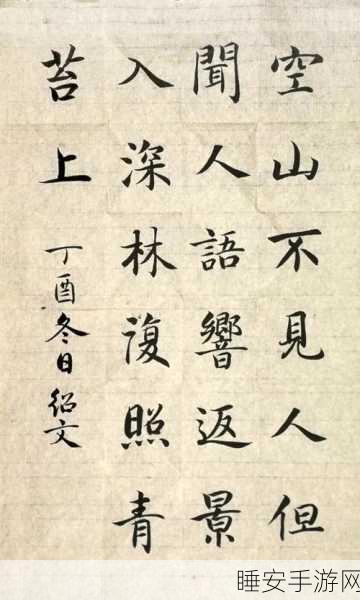 空山不見人但
聞人語響返景
入深林復照青
苔上
丁酉冬日紹文
睡安手游网